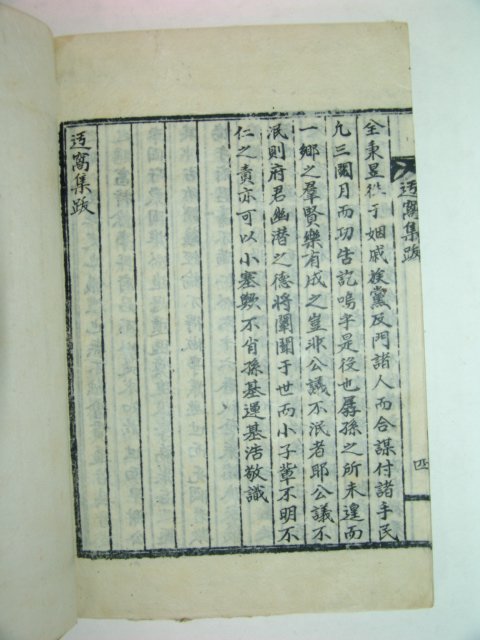 迃窩集跋
四
全秉昱從于姻戚族黨及門諸人而合謀付諸手民
凢三閱月而功告訖嗚乎是役也孱孫之所未遑而
一鄉之羣賢樂有成之豈非公議不泯者耶公議不
泯則府君幽潜之德將闡聞于世而小子軰不明不
仁之責亦可以小塞歟不肖孫基運基浩敬識
迃窩集跋